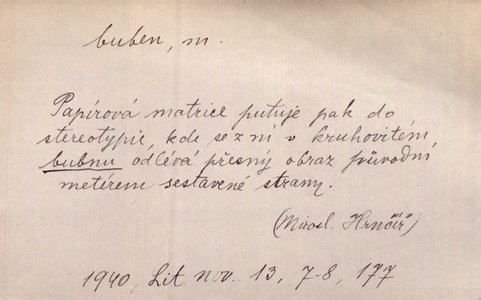 buben, m.
Papírová matrice putuje pak do
stereotypie, kde se z ní v kruhovitém
bubnu odlévá přesný obraz původní
metérem sestavené strany.
(Mirosl. Hrnčíř)
1940, Lit. nov. 13, 7-8, 177